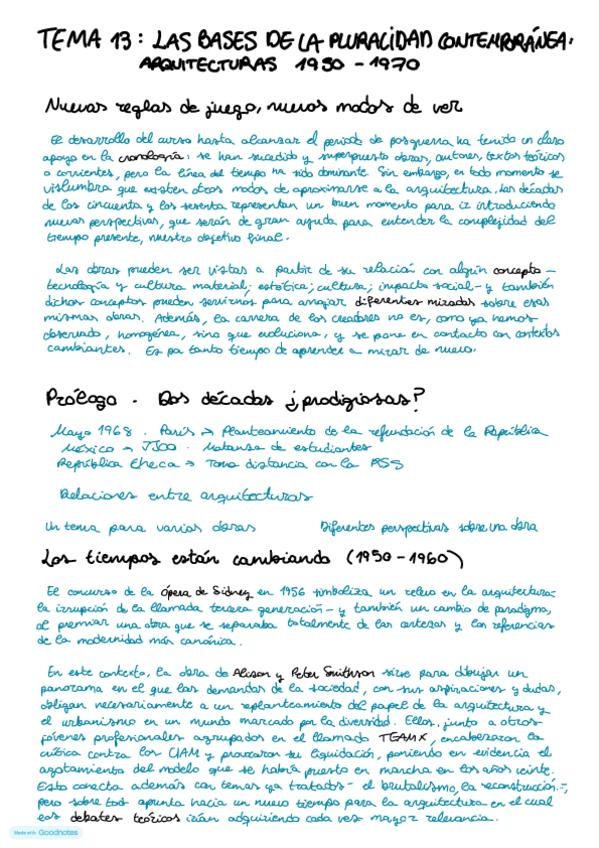 TEMA 13: LAS BASES DE LA PLURALIDAD CONTEMPORÁNEA.
ARQUITECTURAS 1950 - 1970
Nuevas reglas de juego, nuevos modos de ver
El desarrollo del curso hasta alcanzar el periodo de posguerra ha tenido un claro
apoyo en la cronología: se han sucedido y superpuesto obras, autores, textos teóricos
o corrientes, pero la línea del tiempo ha sido dominante. Sin embargo, en todo momento se
vislumbra que existen otros modos de aproximarse a la arquitectura. Las décadas
de los cincuenta y los sesenta representan un buen momento para ir introduciendo
nuevas perspectivas, que serán de gran ayuda para entender la complejidad del
tiempo presente, nuestro objetivo final.
Las obras pueden ser vistas a partir de su relación con algún concepto –
tecnología y cultura material; estética; cultura; impacto social – y también
dichos conceptos pueden servirnos para arrojar diferentes miradas sobre esas
mismas obras. Además, la carrera de los creadores no es, como ya hemos
observado, homogénea, sino que evoluciona, y se pone en contacto con contextos
cambiantes. Es por tanto tiempo de aprender a mirar de nuevo.
Prólogo. Dos décadas ¿prodigiosas?
Mayo 1968. París → Planteamiento de la refundación de la República
México → JJOO. Matanza de estudiantes
República Checa → Toma distancia con la RSS
Relaciones entre arquitecturas
Un tema para varias obras Diferentes perspectivas sobre una obra
Los tiempos están cambiando (1950 - 1960)
El concurso de la ópera de Sidney en 1956 simboliza un relevo en la arquitectura:
la irrupción de la llamada tercera generación – y también un cambio de paradigma,
al premiar una obra que se separaba totalmente de las certezas y las referencias
de la modernidad más canónica.
En este contexto, la obra de Alison y Peter Smithson sirve para dibujar un
panorama en el que las demandas de la sociedad, con sus aspiraciones y dudas,
obligan necesariamente a un replanteamiento del papel de la arquitectura y
el urbanismo en un mundo marcado por la diversidad. Ellos, junto a otros
jóvenes profesionales agrupados en el llamado TEAM X, encabezaron la
crítica contra los CIAM y provocaron su liquidación, poniendo en evidencia el
agotamiento del modelo que se había puesto en marcha en los años veinte.
Esto conecta además con temas ya tratados – el brutalismo, la reconstrucción –,
pero sobre todo apunta hacia un nuevo tiempo para la arquitectura en el cual
los debates teóricos irían adquiriendo cada vez mayor relevancia.
Made with Goodnotes